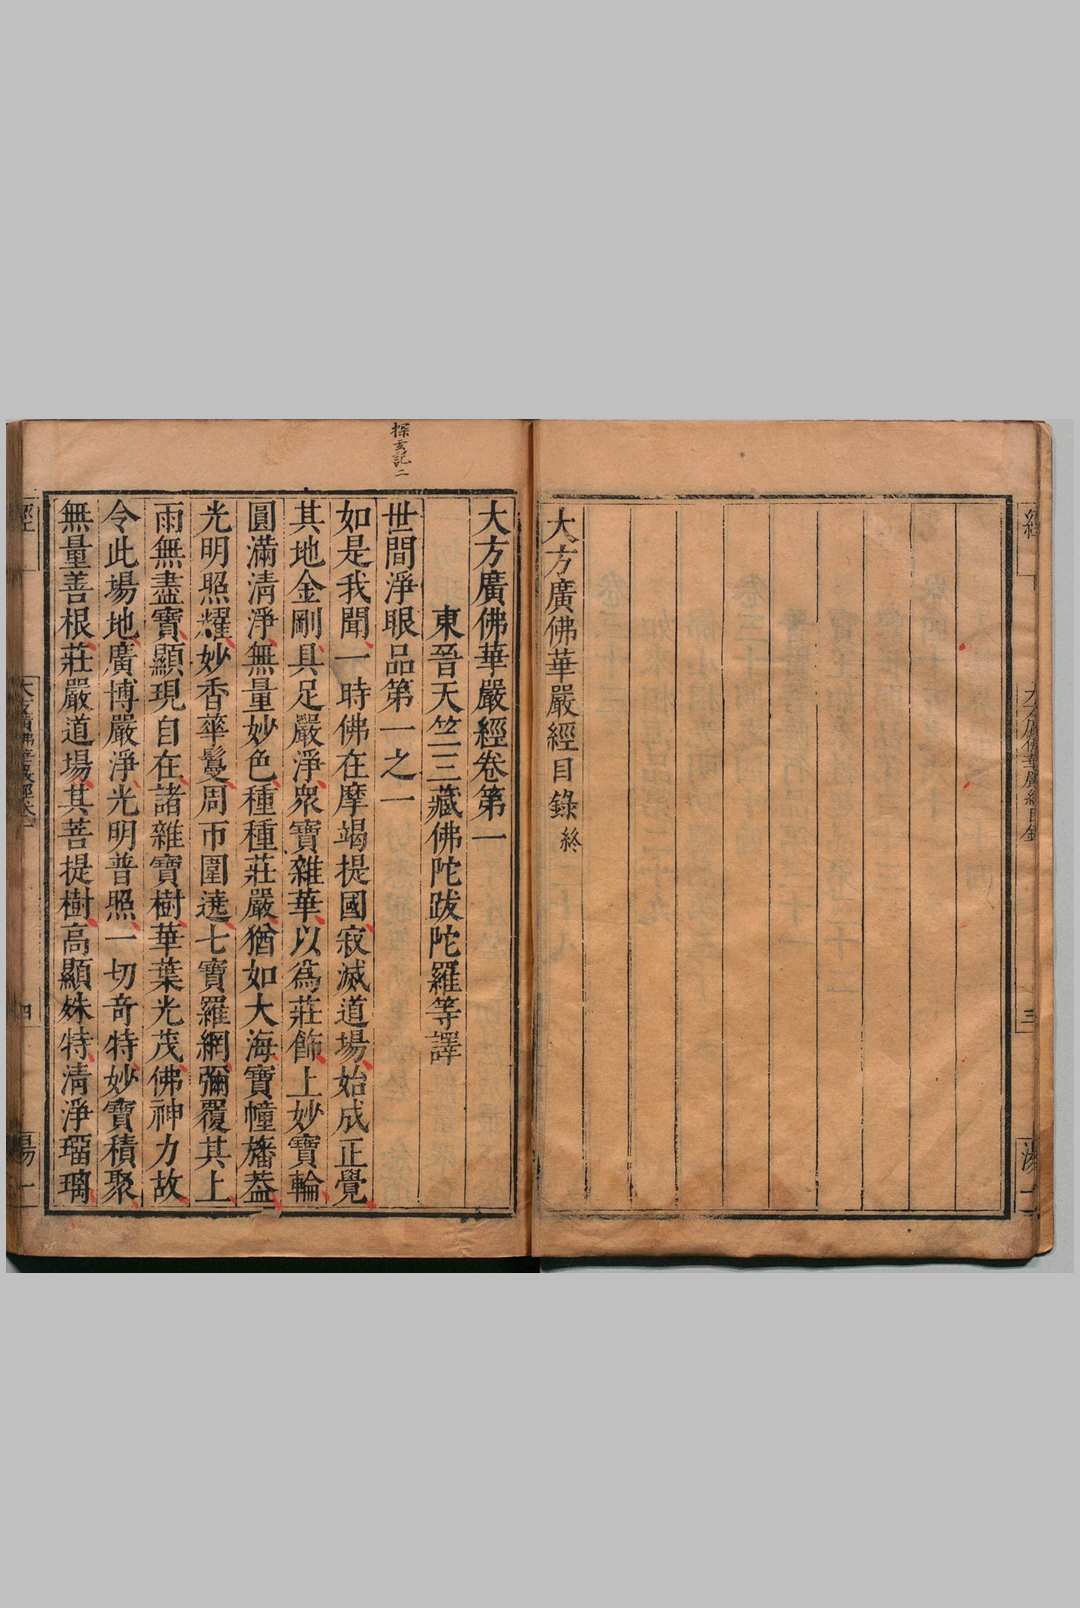 大方廣佛華嚴經目錄終
探玄記二
大方廣佛華嚴經卷第一
東晉天竺三藏佛陀跋陀羅等譯
世間淨眼品第一之一
如是我聞一時佛在摩竭提國寂滅道場始成正覺
其地金剛具足嚴淨衆寶雜華以爲莊飾上妙寶輪
圓滿清淨無量妙色種種莊嚴猶如大海寶幢旛葢
光明照耀妙香華鬘周帀圍遶七寶羅網彌覆其上
雨無盡寶顯現自在諸雜寶樹華葉光茂佛神力故
令此場地廣博嚴淨光明普照一切奇特妙寶積聚
無量善根莊嚴道場其菩提樹高顯姝特清淨瑠璃